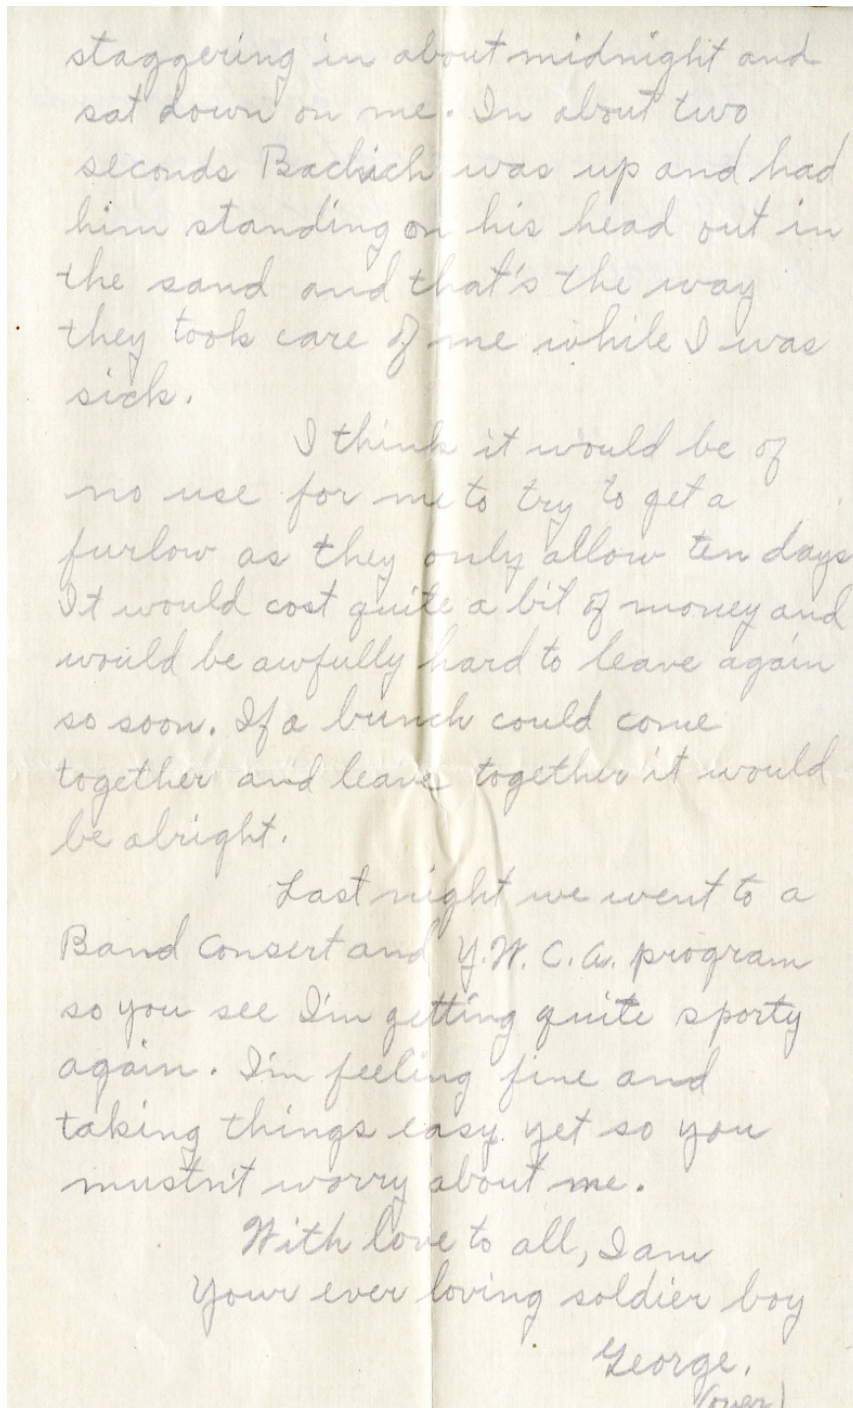 staggering in about midnight and
sat down on me. In about two
seconds Bachich was up and had
him standing on his head out in
the sand and that's the way
they took care of me while I was
sick.
I think it would be of
no use for me to try to get a
furlow as they only allow ten days
It would cost quite a bit of money and
would be awfully hard to leave again
so soon. If a bunch could come
together and leave together it would
be alright.
Last night we went to a
Band Consert and Y.W.C.A. program
so you see I'm getting quite sporty
again. I'm feeling fine and
taking things easy yet so you
mustn't worry about me.
With love to all, I am
Your ever loving soldier boy
George.
(over)